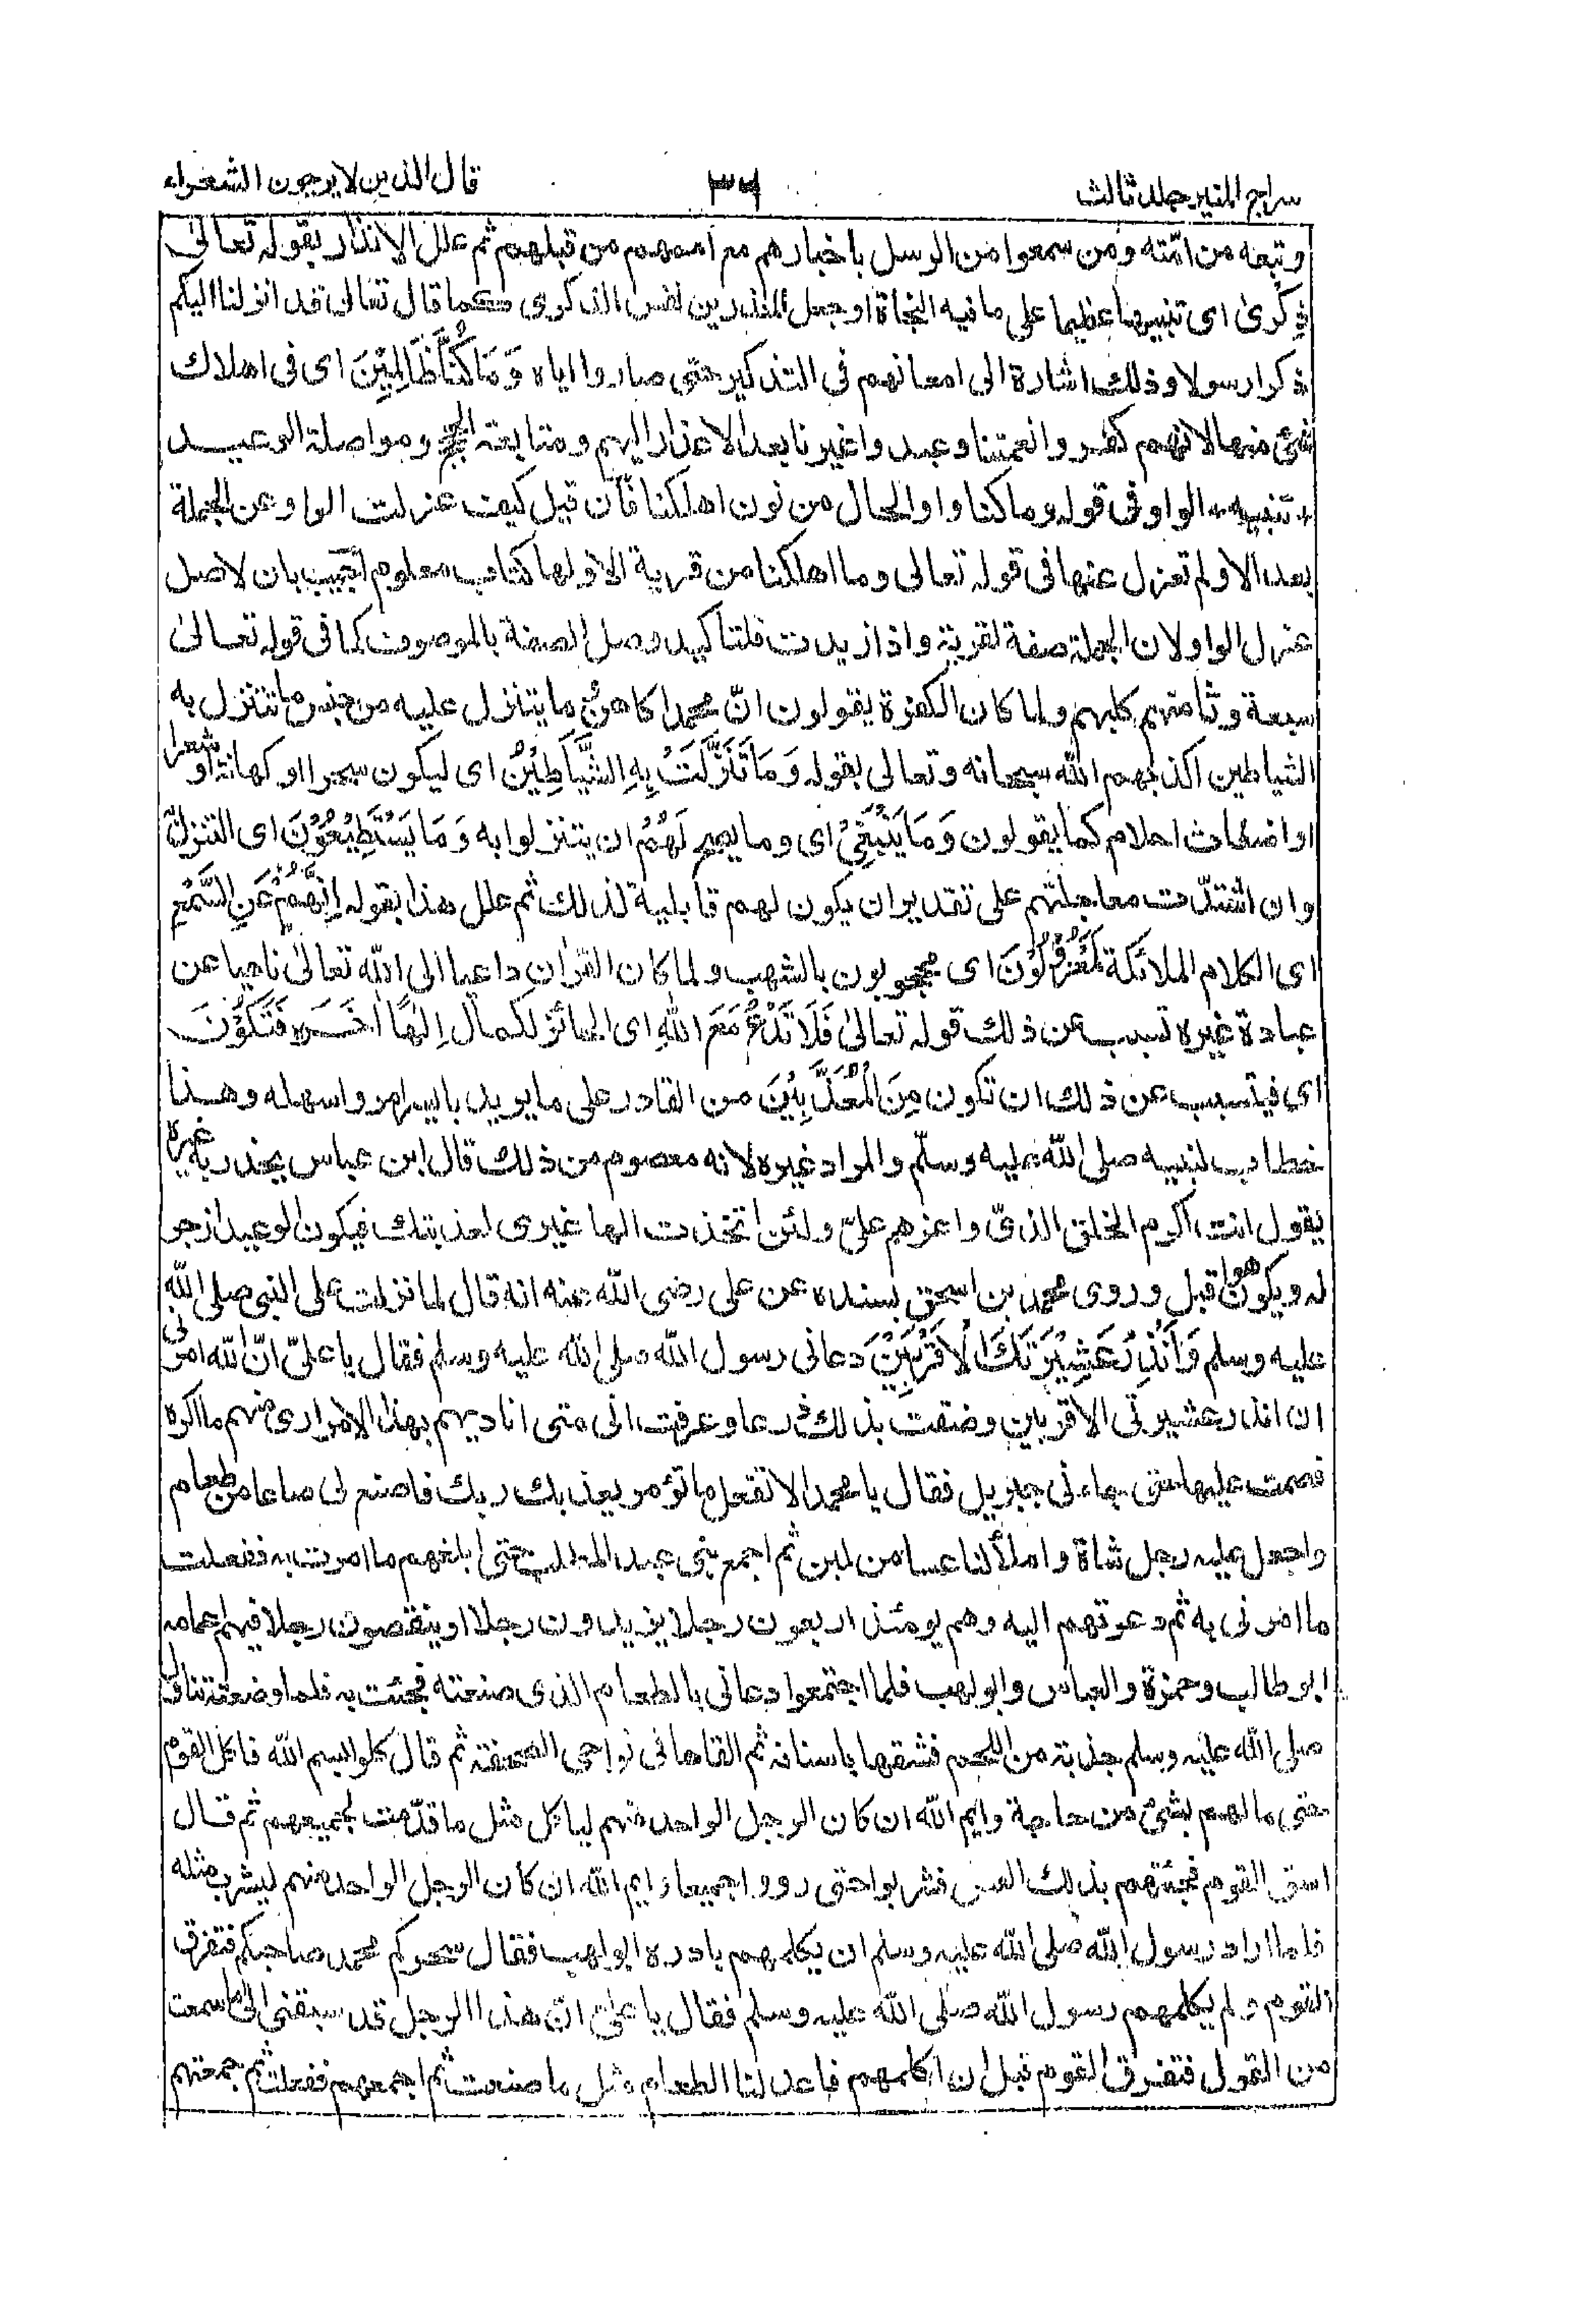 سراج المنير جلد ثالث
٣٦
قال الذين لا يرجون الشعراء
وتبعه من امّته ومن سمعوا من الرسل باخبارهم مع اممهم من قبلهم ثم علل الانذار بقوله تعالىٰ
ذِكْرىٰ اى تنبيها عظيما على ما فيه النجاة او جعل المنذرين نفس الذكرى كما قال تعالى قد انزلنا اليكم
ذكرا رسولا وذلك اشارة الى امعانهم فى التذكير حتى صاروا اياه وَمَا كُنَّا ظَالِمِيْنَ اى فى اهلاك
شئ منها لانهم كفروا نعمتنا وعبدوا غيرنا بعد الاعذار اليهم ومتابعة الحجج ومواصلة الوعيد
* تنبيه * الواو فى قوله وما كنا واو الحال من نون اهلكنا فان قيل كيف عزلت الواو عن الجملة
بعد الا ولم تعزل عنها فى قوله تعالى وما اهلكنا من قرية الا ولها كتاب معلوم اجيب بان لاصل
عزل الواو لان الجملة صفة لقرية واذا زيدت فلتاكيد وصل الصفة بالموصوف كما فى قوله تعالىٰ
سبعة وثامنهم كلبهم ولما كان الكفرة يقولون انّ محمدا كاهن وما يتنزل عليه من جنس ما تتنزل به
الشياطين اكذبهم الله سبحانه وتعالى بقوله وَمَا تَنَزَّلَتْ بِهِ الشَّيَاطِيْنُ اى ليكون سحرا او كهانة او شعرا
او اضغاث احلام كما يقولون وَمَا يَنْبَغِىْ اى وما يصح لَهُمْ ان يتنزلوا به وَمَا يَسْتَطِيْعُوْنَ اى التنزل به
وان اشتدّت معاجلتهم على تقدير ان يكون لهم قابلية لذلك ثم علل هذا بقوله اِنَّهُمْ عَنِ السَّمْعِ
اى الكلام الملائكة لَمَعْزُوْلُوْنَ اى محجوبون بالشهب ولما كان القراٰن داعيا الى الله تعالىٰ ناهيا عن
عبادة غيره تسبب عن ذلك قوله تعالىٰ فَلَا تَدْعُ مَعَ اللهِ اى الحائز لكمال اِلٰهًا اٰخَرَ فَتَكُوْنَ
اى فيتسبب عن ذلك ان تكون مِنَ الْمُعَذَّبِيْنَ من القادر على ما يريد بايسر امر واسهله وهذا
خطاب لنبيه صلى الله عليه وسلّم والمراد غيره لانه معصوم من ذلك قال ابن عباس يحذر به غيره
يقول انت اكرم الخلق الذىّ واعزهم علىّ ولئن اتخذت الها غيرى لعذبتك فيكون الوعيد ازجر
له ويكون هو اقبل وروى محمد بن اسحق بسنده عن على رضى الله عنه انه قال لما نزلت على النبى صلى الله
عليه وسلم وَاَنْذِرْ عَشِيْرَتَكَ الْاَقْرَبِيْنَ دعانى رسول الله صلى الله عليه وسلم فقال يا علىّ انّ الله امرنى
ان انذر عشيرتى الاقربين وضقت بذلك ذرعا وعرفت انى متى اناديهم بهذا الامر ارى منهم ما اكره
فصمت عليها حتى جاءنى جبريل فقال يا محمد الا تفعل ما تؤمر يعذبك ربك فاصنع لى صاعا من طعام
واجعل عليه رجل شاة واملأ لنا عسا من لبن ثم اجمع بنى عبد المطلب حتى ابلغهم ما امرت به ففعلت
ما امرنى به ثم دعوتهم اليه وهم يومئذ اربعون رجلا يزيدون رجلا او ينقصون رجلا فيهم اعمامه
ابو طالب وحمزة والعباس وابو لهب فلما اجتمعوا دعانى بالطعام الذى صنعته فجئت به فلما وضعته تناول
صلى الله عليه وسلم جذبة من اللحم فشقها باسنانه ثم القاها فى نواحى الصحفة ثم قال كلوا بسم الله فاكل القوم
حتى ما لهم بشئ من حاجة وايم الله ان كان الرجل الواحد منهم لياكل مثل ما قدّمت لجميعهم ثم قال
اسق القوم فجئتهم بذلك العس فشربوا حتى رووا جميعا وايم الله ان كان الرجل الواحد منهم ليشرب مثله
فلما اراد رسول الله صلى الله عليه وسلم ان يكلمهم بادره ابو لهب فقال سحركم محمد صاحبكم فتفرق
القوم ولم يكلمهم رسول الله صلى الله عليه وسلم فقال يا علىّ انّ هذا الرجل قد سبقنى الى ما سمعت
من القول فتفرق القوم قبل ان اكلمهم فاعد لنا الطعام مثل ما صنعت ثم اجمعهم ففعلت ثم جمعتهم